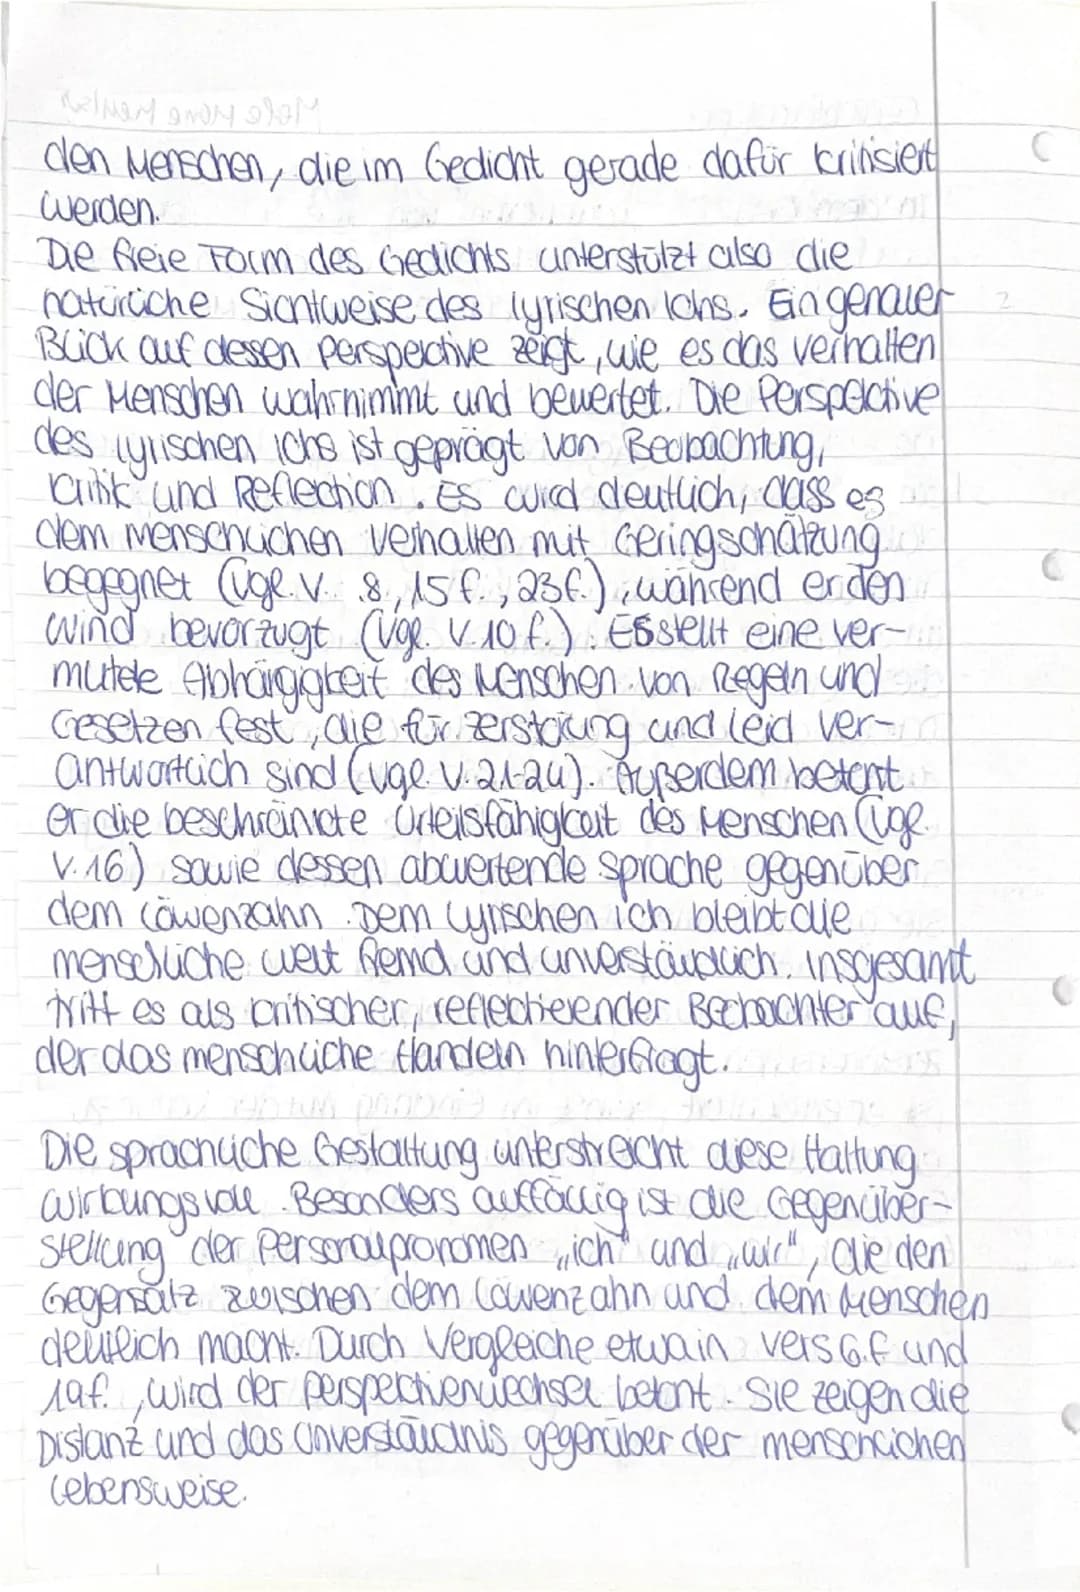 den Menschen, die im Gedicht gerade dafür kritisiert
werden.
Die freie Form des Gedichts unterstützt also die
natürliche Sichtweise des lyrischen Ichs. Ein genauer
Blick auf dessen Perspektive zeigt, wie es das Verhalten
der Menschen wahrnimmt und bewertet. Die Perspektive
des lyrischen Ichs ist geprägt von Beobachtung,
Kritik und Reflection. Es wird deutlich, dass es
dem menschlichen Verhalten mit Geringschätzung
begegnet (Vgl. V. 8, 15 f., 23 f.), während er den
Wind bevorzugt (Vgl. V. 10 f.). Es stellt eine ver-
mutete Abhängigkeit des Menschen von Regeln und
Gesetzen fest, die für Zerstörung und Leid ver-
antwortlich sind (vgl. V. 21-24). Außerdem betont
er die beschränkte Urteilsfähigkeit des Menschen (Vgl.
V. 16) sowie dessen abwertende Sprache gegenüber
dem Löwenzahn. Dem Lyrischen ich bleibt die
menschliche Welt fremd und unverständlich. Insgesamt
tritt es als kritischer, reflektierender Beobachter auf,
der das menschliche Handeln hinterfragt.
Die sprachliche Gestaltung unterstreicht diese Haltung
wirkungsvoll. Besonders auffällig ist die Gegenüber-
stellung der Personalpronomen „ich" und „wir", die den
Gegensatz zwischen dem Löwenzahn und dem Menschen
deutlich macht. Durch Vergleiche etwa in Vers 6.f und
19f., wird der Perspektivenwechsel betont. Sie zeigen die
Distanz und das Unverständnis gegenüber der menschlichen
Lebensweise.